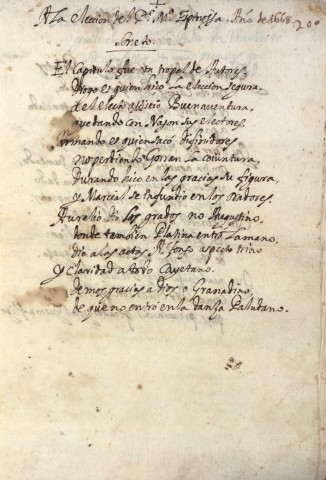 A La Eleccion del P.e M.o Espinossa. Año de 1668
200
Soneto.
El Capitulo fue un tropel de Autores
Hugo es quien hizo la eleccion segura
de el electo assistio Buenaventura,
quedando con Nason sus electores.
Armando es quien sacó Difinidores
no perdiendo Gorran la coiuntura,
Durando hizo en las gracias su figura,
y Marcial se infundio en los Oradores.
Aurelio dio los grados no Augustino,
donde tambien Platina entró la mano,
dio a las actos aspecto trino
Y claridad a todo Cayetano.
Demos gracias a Dios o Granadino,
de que no entró en la dansa Paludano.